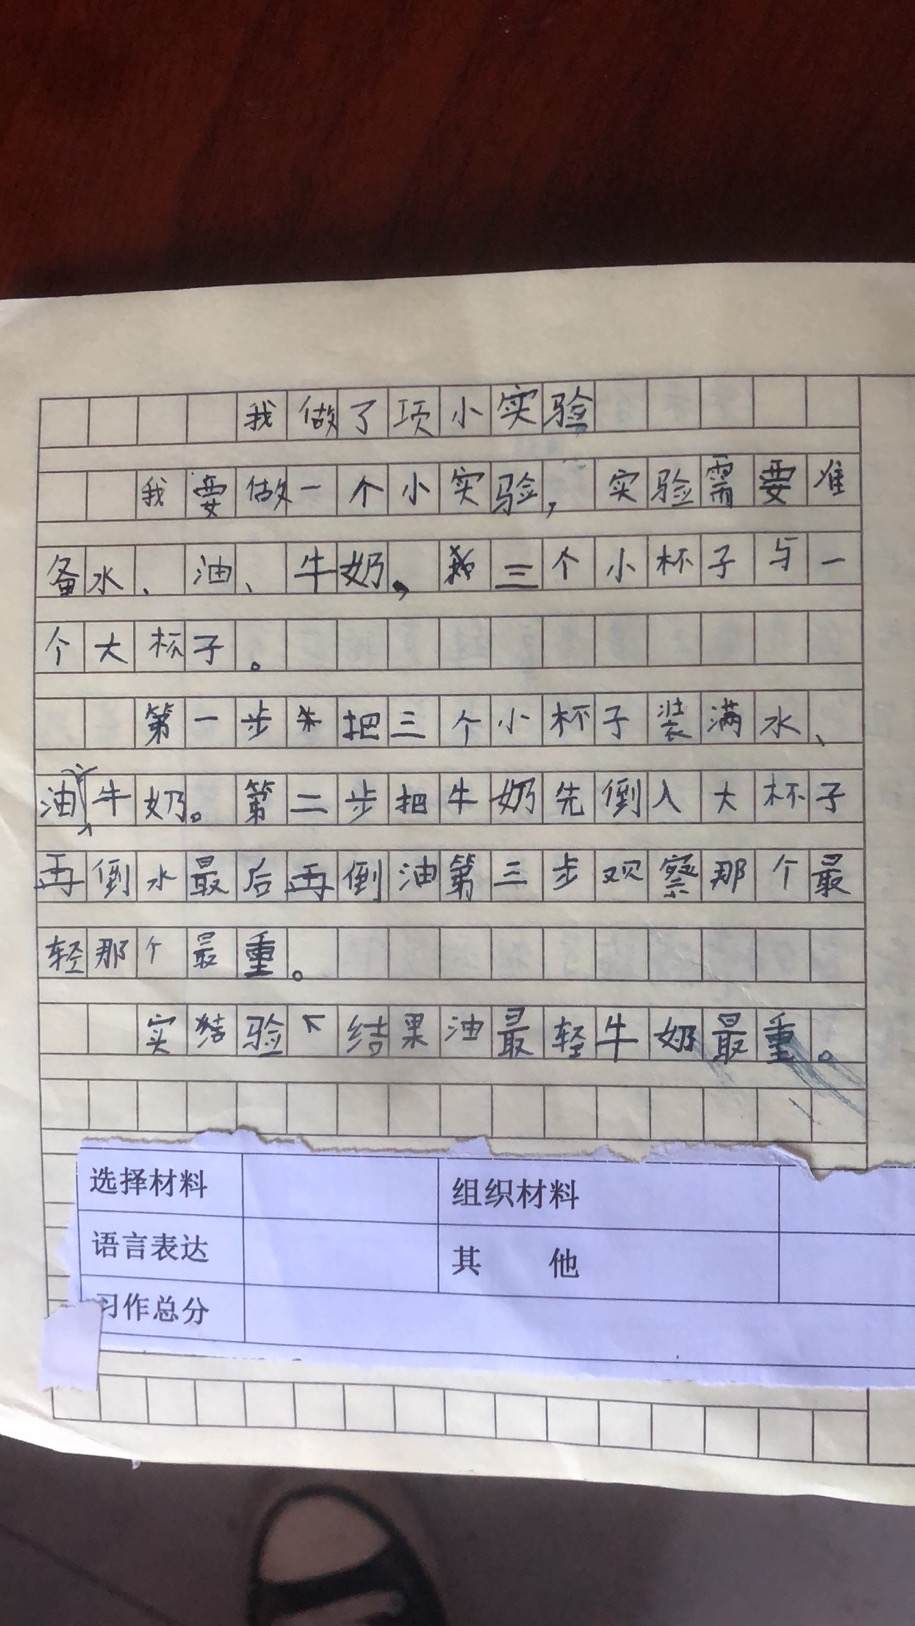 我做了项小实验
我要做一个小实验，实验需要准
备水、油、牛奶，三个小杯子与一
个大杯子。
第一步把三个小杯子装满水、
油牛奶。第二步把牛奶先倒入大杯子
再倒水最后再倒油第三步观察那个最
轻那个最重。
实验结果油最轻牛奶最重。
选择材料 组织材料
语言表达 其 他
习作总分